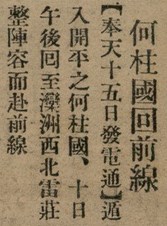 何柱國回前線
【奉天十五日發電通】遁
入開平之何柱國、十日
午後回至灤洲西北雷莊
整陣容而赴前線